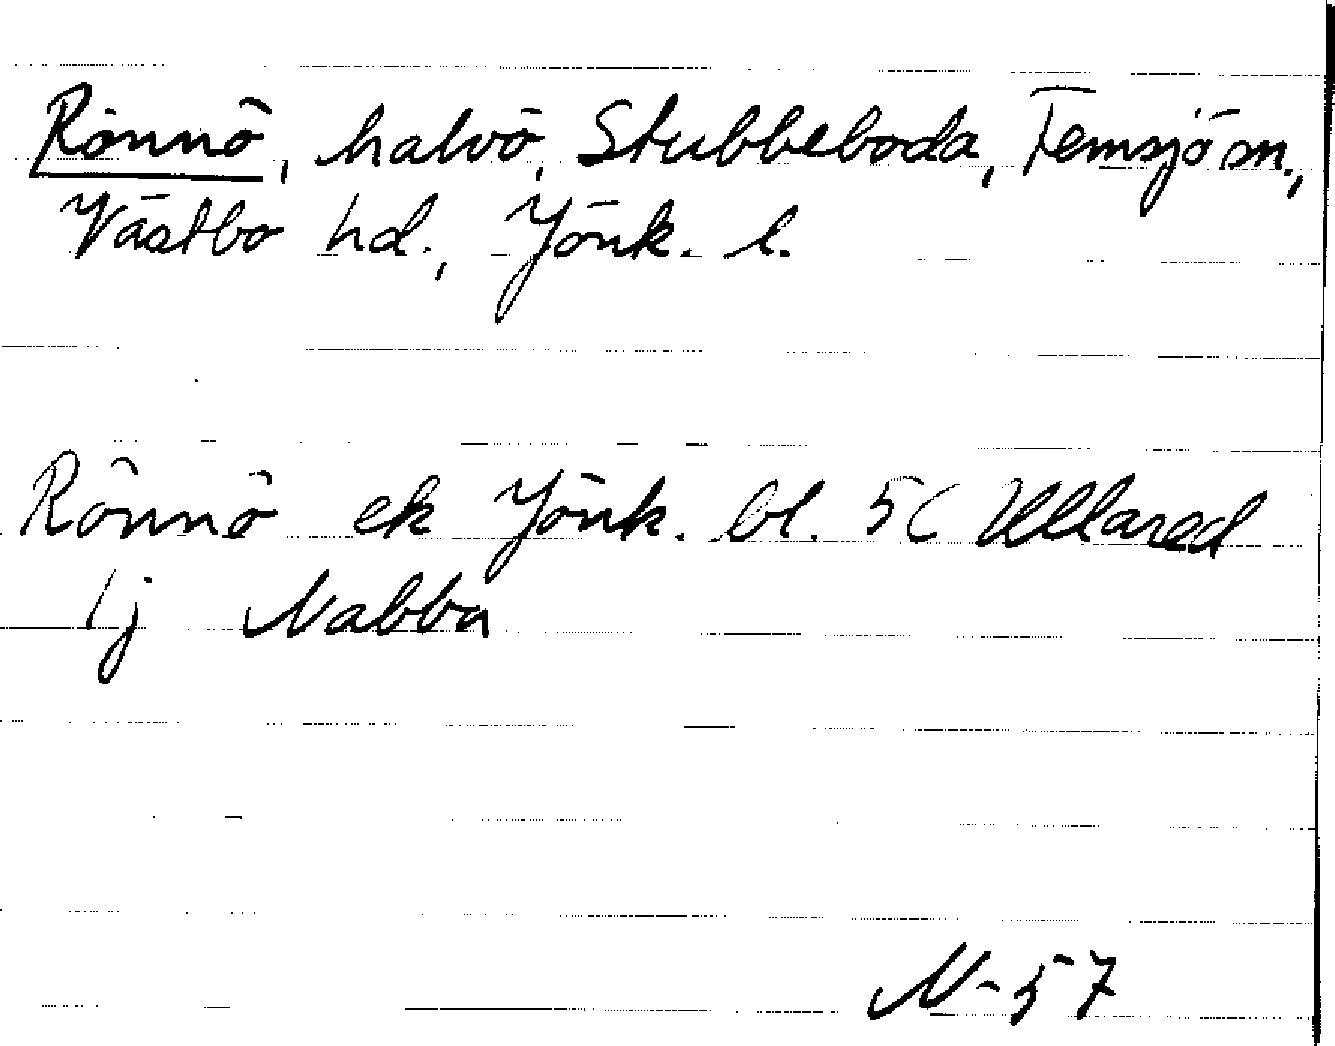 Rönnö, halvö, Stubbeboda, Femsjö sn.,
Västbo hd., Jönk. l.
Rönnö ek Jönk. bl. 5C Ullared
1j Nabba
N-57